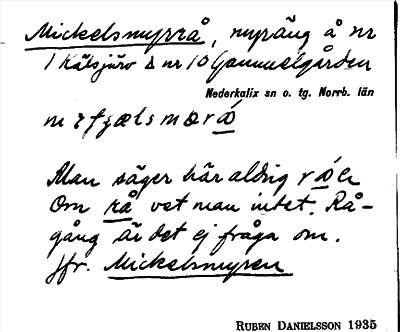 Mickelsmyrrå, myräng å nr
1 Kälsjärv & nr 10 Gammelgården
Nederkalix sn o. tg. Norrb. län
Man säger här aldrig
Om rå vet man intet. Rå-
gång är det ej fråga om.
Jfr. Mickelsmyren
RUBEN DANIELSSON 1935